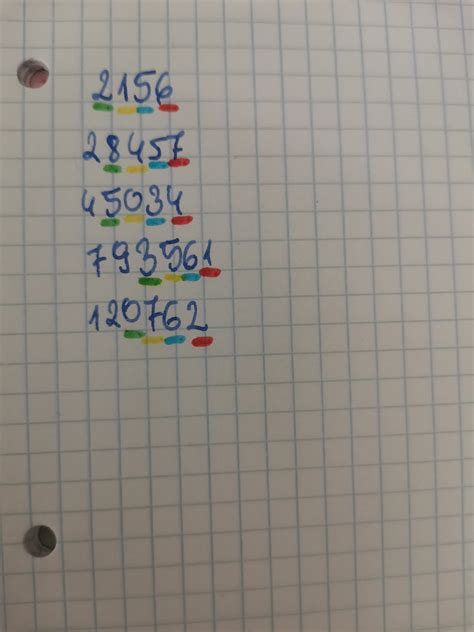 2156
28457
45034
793561
120762